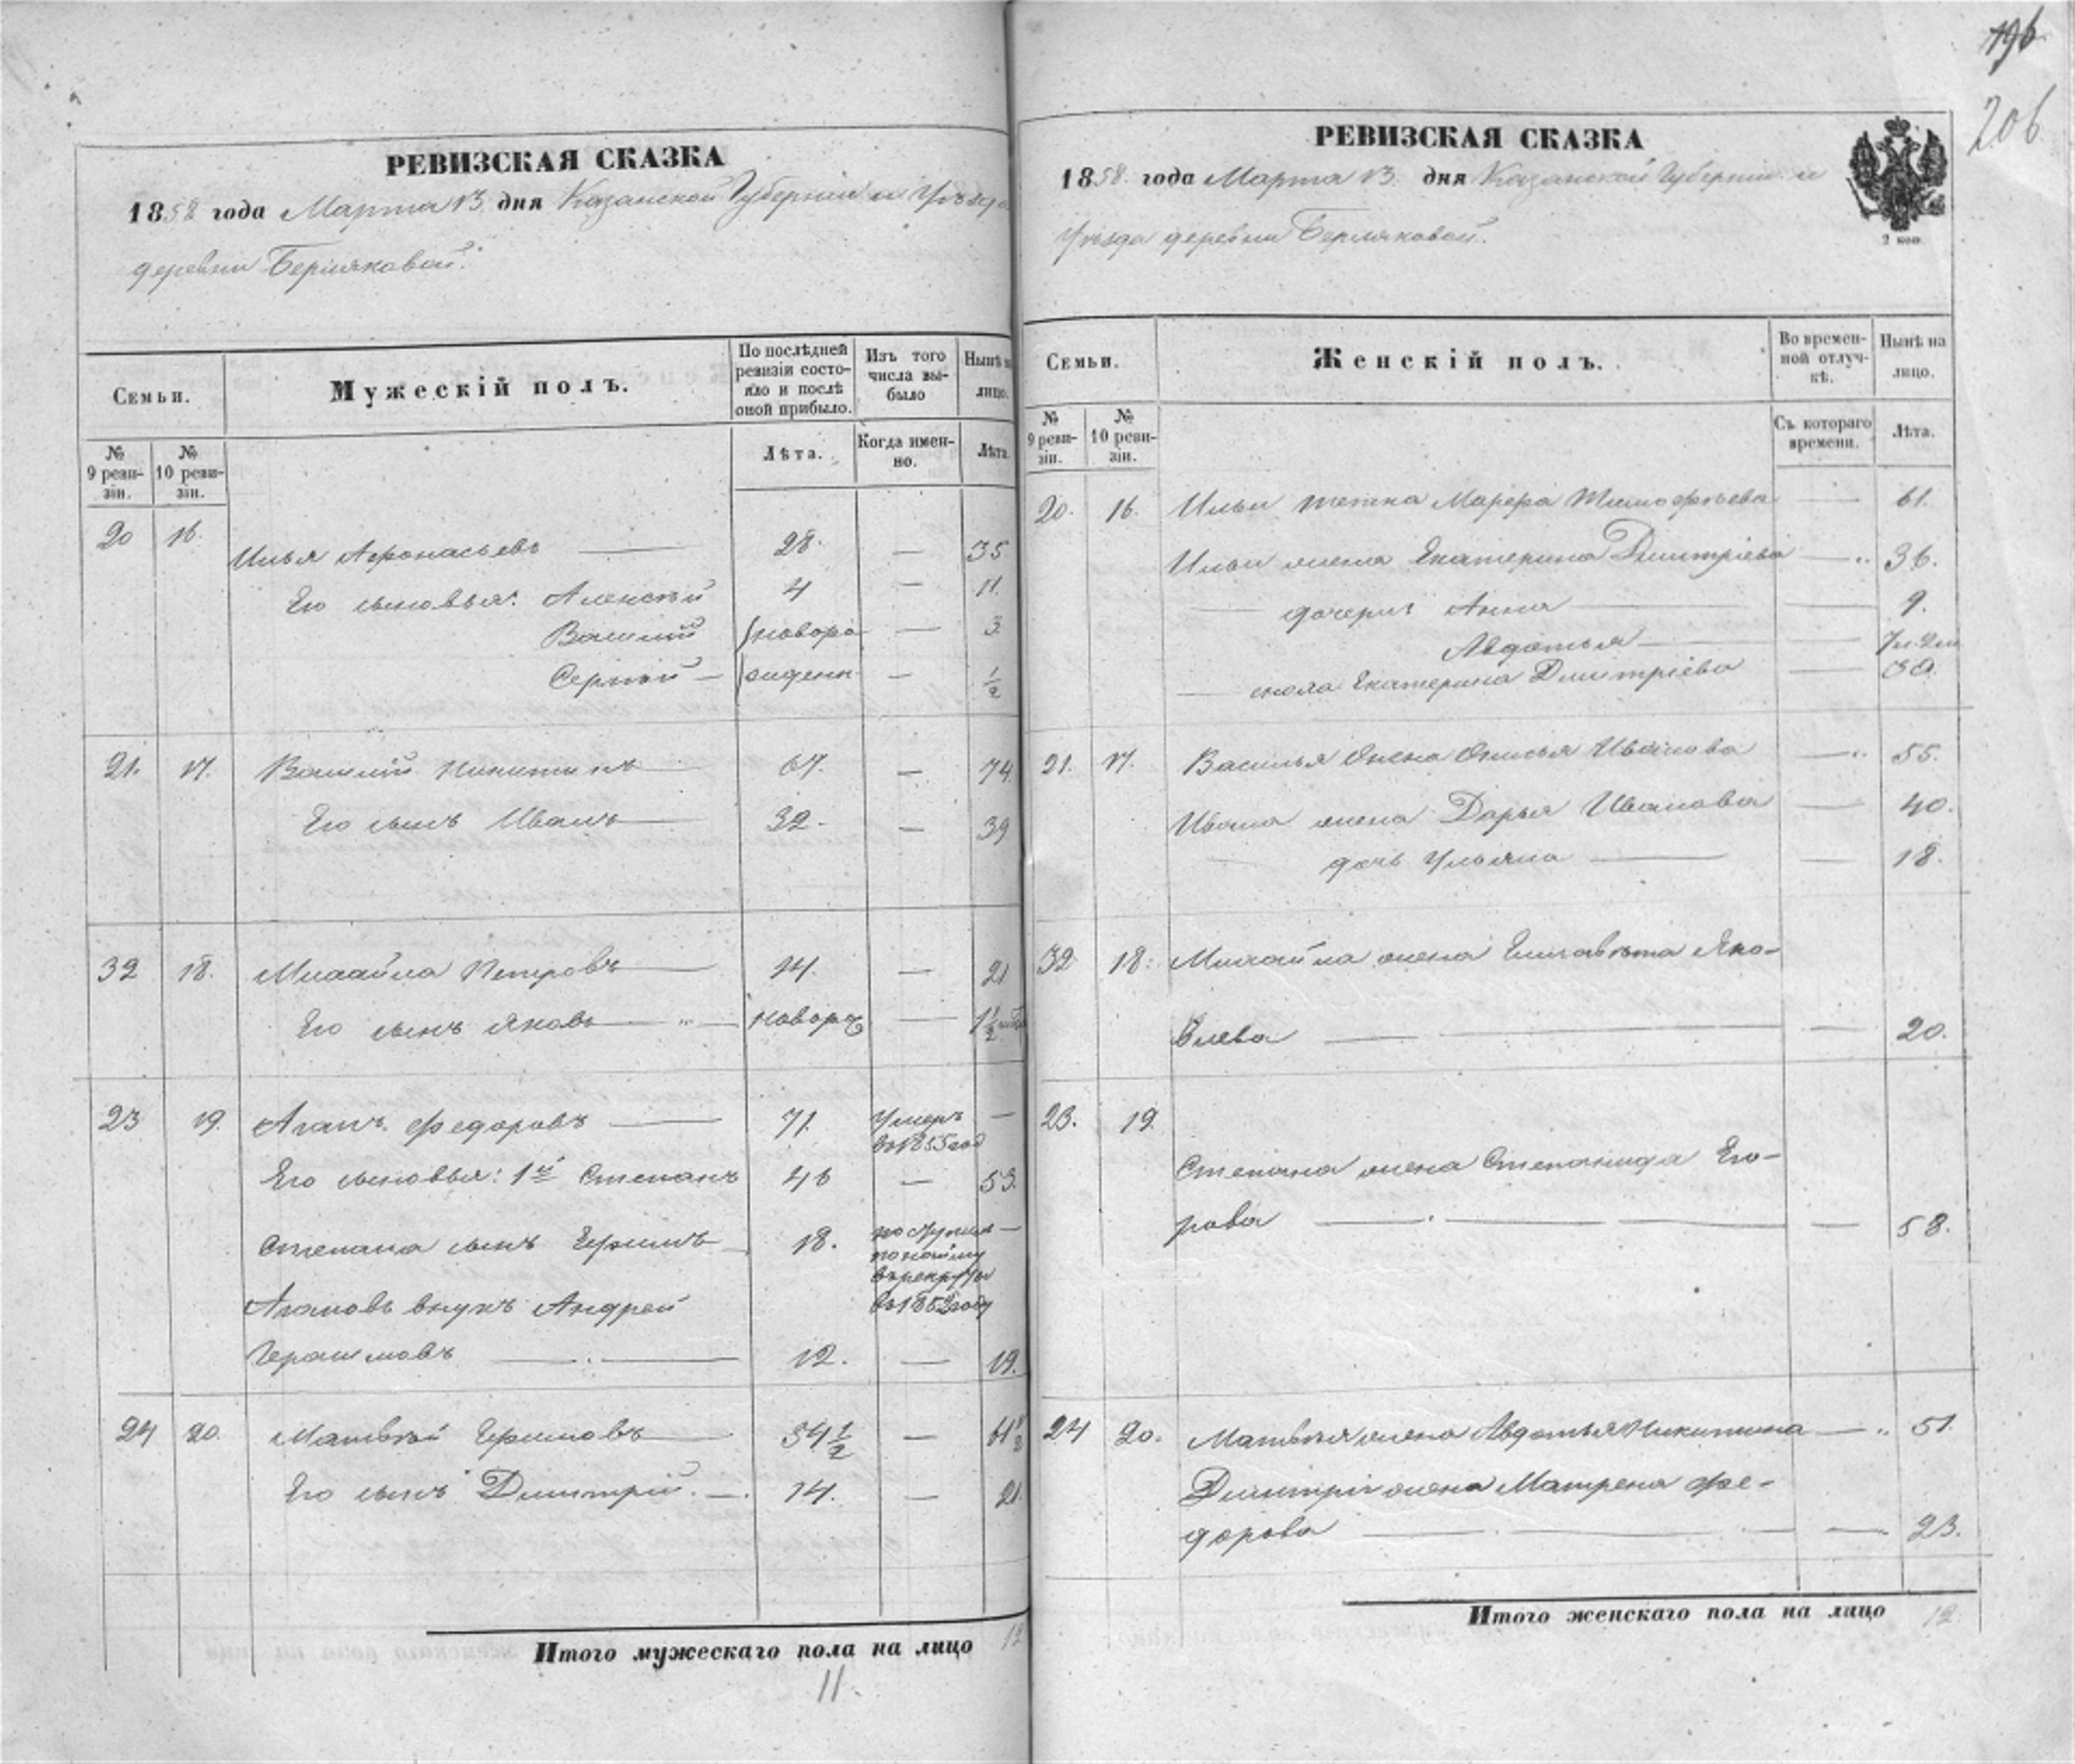 196
206
РЕВИЗСКАЯ СКАЗКА
1858 года Марта 13 дня Казанской Губернiи и Уѣзда
деревни Берляковой.
Семьи.
Мужескiй полъ.
По послѣдней ревизiи состояло и послѣ оной прибыло.
Изъ того числа выбыло
Нынѣ на лицо.
№ 9 ревизiи.
№ 10 ревизiи.
Лѣта.
Когда именно.
Лѣта.
20 16. Илья Афонасьевъ — 28. — 35
Его сыновья: Алексѣй 4 — 11.
Василiй новоро — 3.
Сергѣй — жденн. — 1/2
21. 17. Василiй Никитинъ — 67. — 74.
Его сынъ Иванъ — 32. — 39
32 18. Михайла Петровъ — 14. — 21
Его сынъ Яковъ — новорож — 1 1/2
23 19. Агапъ Федоровъ — 71. Умеръ —
въ 1855 год
Его сыновья: 1й Степанъ 46 — 53.
Степана сынъ Ефимъ — 18. поступил —
по найму
въ рекруты
Агаповъ внукъ Андрей въ 1852 году
Герасимовъ — 12. — 19.
24 20. Матвѣй Ефимовъ — 54 1/2 — 61 1/2
Его сынъ Дмитрiй. — 14. — 21.
Итого мужескаго пола на лицо 12
11.
РЕВИЗСКАЯ СКАЗКА
1858. года Марта 13 дня Казанской Губернiи и
Уѣзда деревни Берляковой.
2 коп.
Семьи.
Женскiй полъ.
Во временной отлучкѣ.
Нынѣ на лицо.
№ 9 ревизiи.
№ 10 ревизiи.
Съ котораго времени.
Лѣта.
20. 16. Ильи тетка Марфа Тимофѣева — 61.
Ильи жена Екатерина Дмитрiева — 36.
— дочери Анна — 9.
Авдотья —
Екатерина Дмитрiева —
21. 17. Василья жена Анисья Иванова — 55.
Ивана жена Дарья Иванова — 40.
дочь Ульяна — 18.
32 18. Михайла жена Елисавѣта Яко-
влева — 20.
23. 19.
Степана жена Степанида Его-
рова — 58.
24 20. Матвѣя жена Авдотья Никитина — 51.
Дмитрiя жена Матрена Фе-
дорова — 23.
Итого женскаго пола на лицо 12.